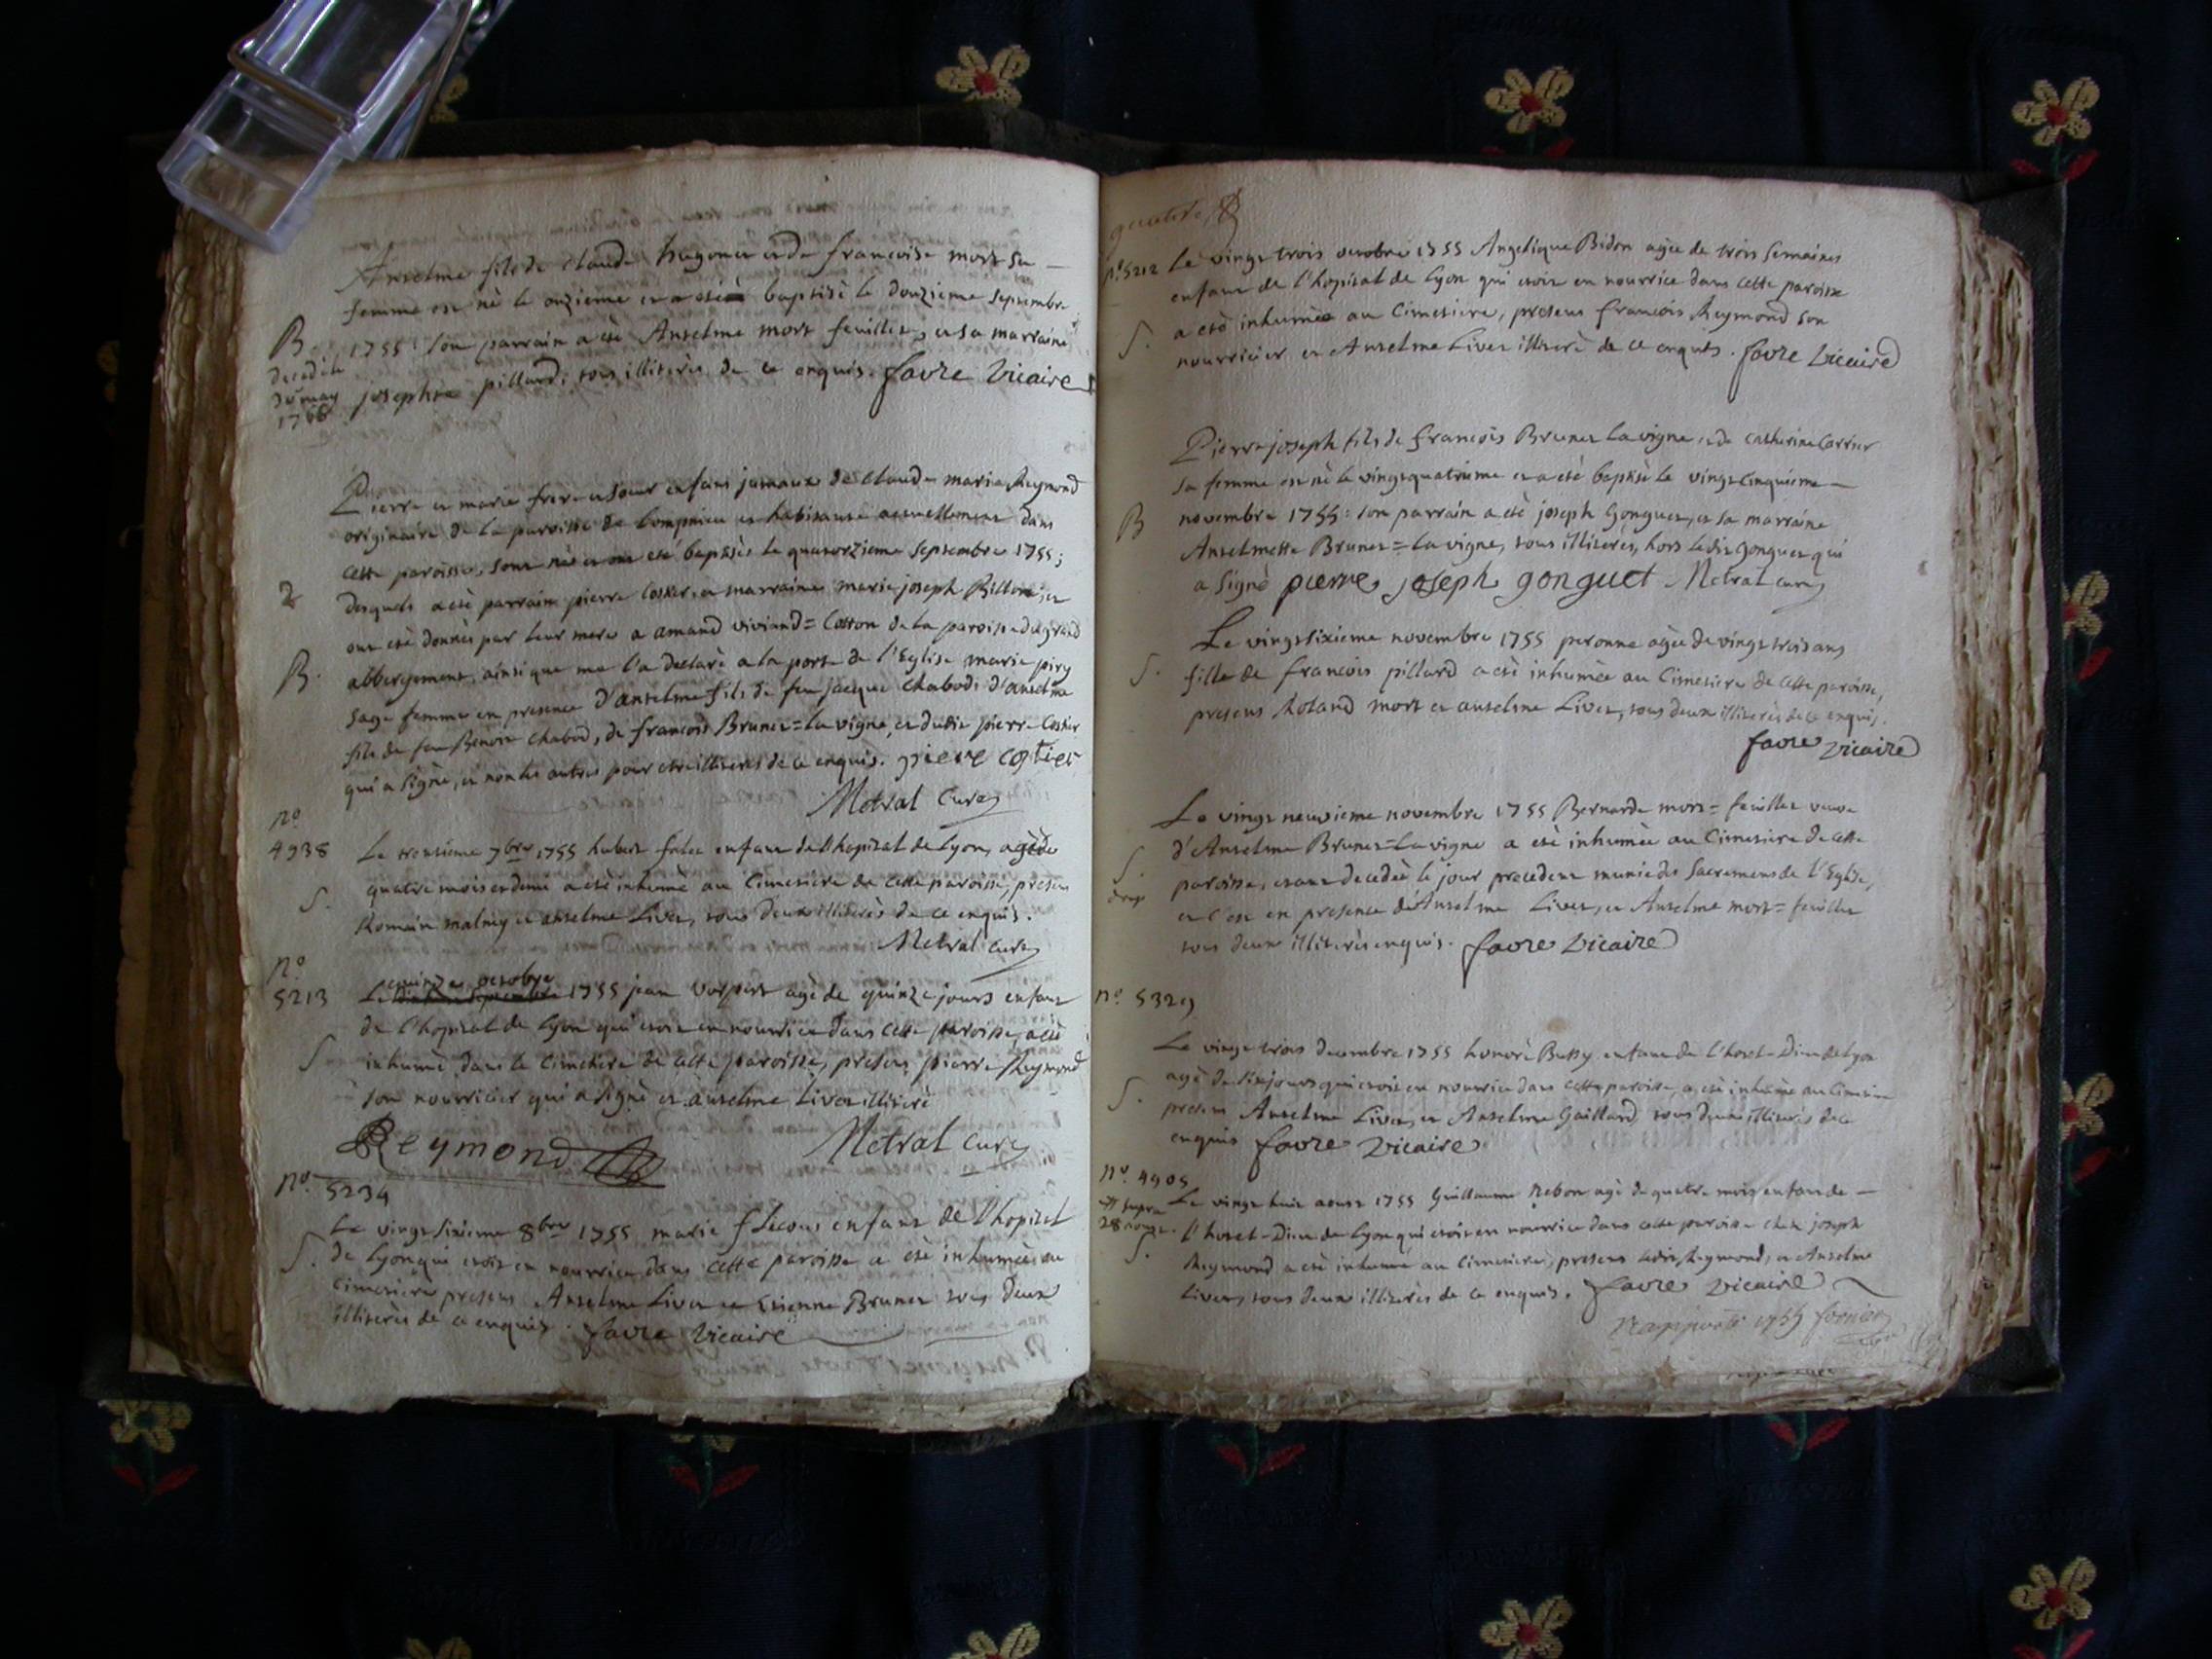 Anselme fils de Claude hugonet et de francoise mort sa
femme est nè le onzieme et a etè baptisè le douzieme septembre
B. 1755: son parrain a etè Anselme mort feuillet, et sa marraine
decedè le
30 may josephte pillard, tous illiterès de ce enquis. favre vicaire
1766
Pierre et marie frere et soeur enfans jumaux de Claude marie Reymond
originaire de la paroisse de lompnieu et habitante actuellement dans
cette paroisse, sont nès et ont etè baptisès le quatorzieme septembre 1755;
2 desquels a etè parrain pierre Costier, et marraine marie joseph Billion, et
ont etè donnès par leur mere a amand viviand = Cotton de la paroisse du grand
B. abbergement, ainsi que me l'a declarè a la porte de l'Eglise marie piry
sage femme en presence d'anselme fils de feu jacque Chabod, d'anselme
fils de feu Benoit Chabod, de francois Brunet = la vigne, et dudit pierre Costier
qui a signè, et non les autres pour etre illiterès de ce enquis. piere Costier
Metral curè
no
4938 Le trentieme 7bre 1755 hubert enfant de l'hopital de Lyon, agè de
S. quatre mois et demi a etè inhumè au Cimetiere de cette paroisse, presens
Romain malny et anselme Livet, tous deux illiterès de ce enquis.
Metral curè
no quinze octobre
5213 Le septembre 1755 jean agè de quinze jours enfant
de l'hopital de Lyon qui etoit en nourrice dans cette paroisse, a etè
S inhumè dans le Cimetiere de cette paroisse, presens pierre Reymond
son nourricier qui a signè et anselme Livet illiterè
Reymond Metral curè
no. 5234
Le vingt sixieme 8bre 1755 marie enfant de l'hopital
S. de Lyon qui etoit en nourrice dans cette paroisse a etè inhumèe au
Cimetiere presens Anselme Livet et Etienne Brunet tous deux
illiterès de ce enquis. favre vicaire
no. 5212 Le vingt trois octobre 1755 Angelique Bidon agèe de trois semaines
enfant de l'hopital de Lyon qui etoit en nourrice dans cette paroisse
S. a etè inhumèe au Cimetiere, presens francois Reymond son
nourricier et Anselme Livet illiterè de ce enquis. favre vicaire
Pierre joseph fils de francois Brunet la vigne et de catherine Carrier
sa femme est nè le vingt quatrieme et a etè baptisè le vingt cinquieme
B novembre 1755: son parrain a etè joseph Gonguet, et sa marraine
Anselmette Brunet = la vigne, tous illiteres, hors ledit Gonguet qui
a signè pierre joseph gonguet Metral curè
Le vingt sixieme novembre 1755 peronne agèe de vingt trois ans
S. fille de francois pillard a etè inhumèe au Cimetiere de cette paroisse,
presens Roland mort et anselme Livet, tous deux illiterès de ce enquis.
favre vicaire
Le vingt neuvieme novembre 1755 Bernarde mort = feuillet veuve
d'Anselme Brunet = la vigne a etè inhumèe au Cimetiere de cette
S. paroisse, etant decedèe le jour precedent munie des Sacremens de l'Eglise,
et c'est en presence d'Anselme Livet, et Anselme mort = feuillet
tous deux illiterès enquis. favre vicaire
no. 5329
Le vingt trois decembre 1755 honorè Bussy enfant de l'hotel-Dieu de Lyon
agè de six jours qui etoit en nourrice dans cette paroisse, a etè inhumè au Cimetiere
S. presens Anselme Livet, et Anselme Gaillard tous deux illiterès de ce
enquis favre vicaire
no. 4905
Le vingt huit aoust 1755 Guillaume Rebon agè de quatre mois enfant de
supra
28 aougt. l'hotel-Dieu de Lyon qui etoit en nourrice dans cette paroisse chez joseph
S. Reymond a etè inhumè au Cimetiere, presens ledit Reymond, et Anselme
Livet, tous deux illiterès de ce enquis. favre vicaire